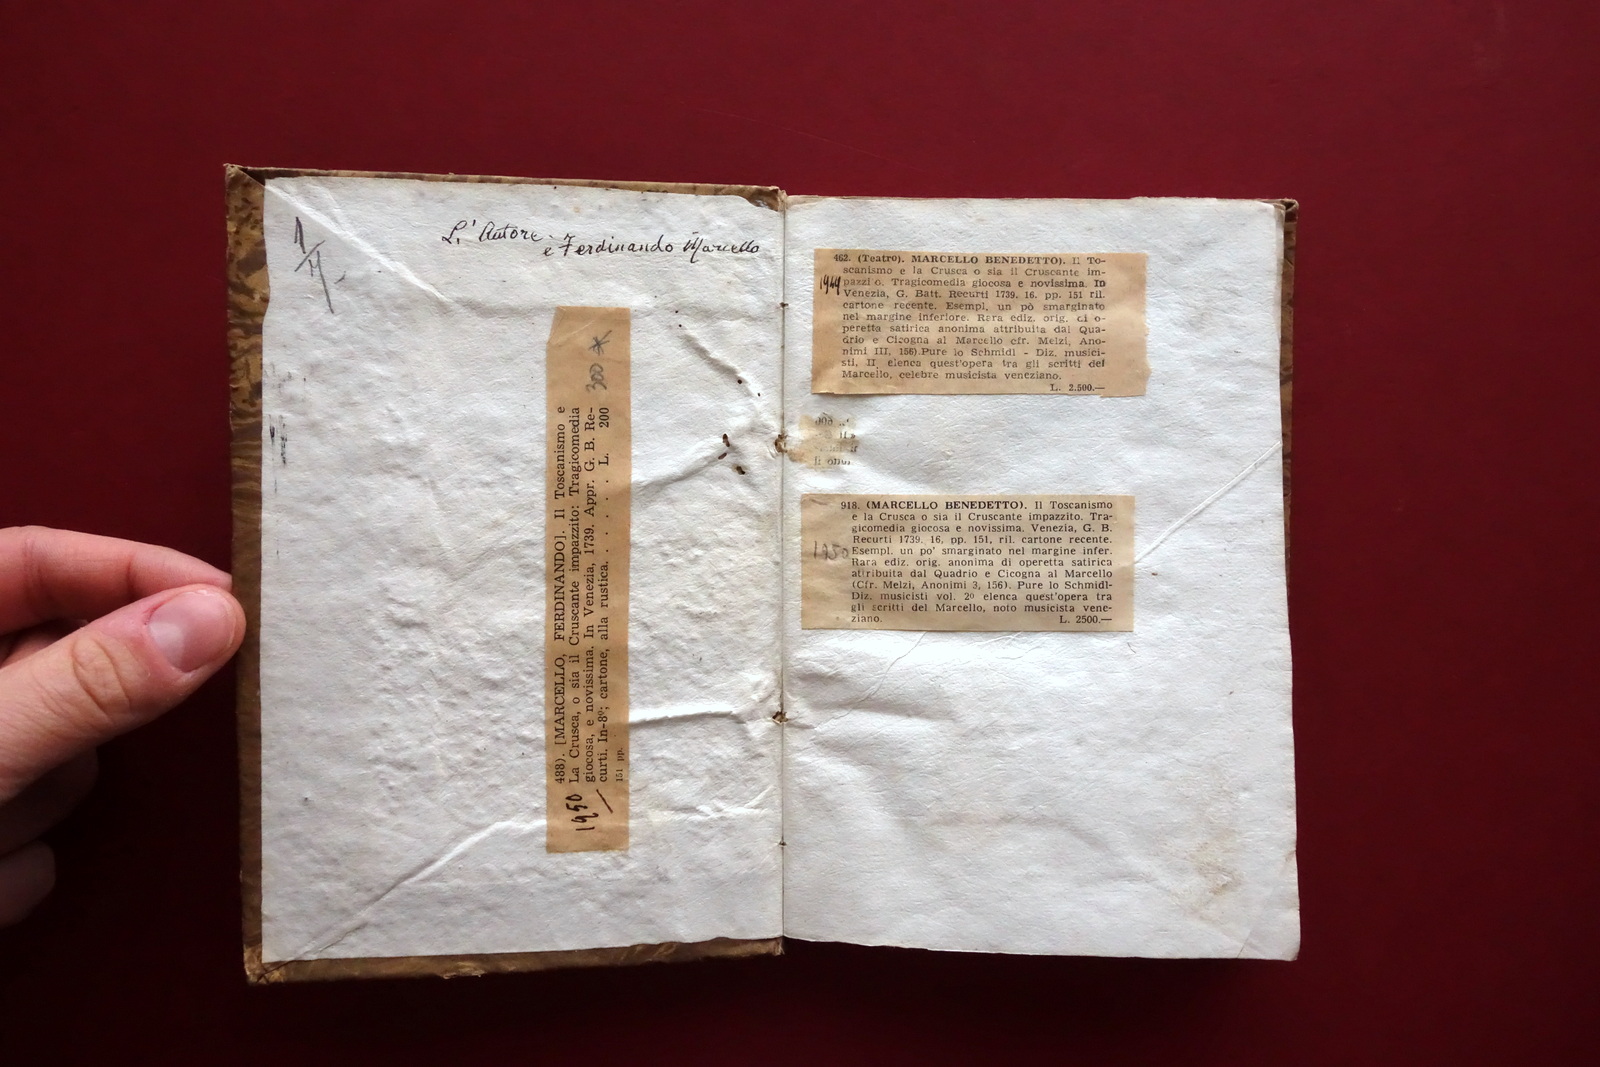 1/4
L'Autore
è Ferdinando Marcello
300
488). [MARCELLO, FERDINANDO]. Il Toscanismo e
La Crusca, o sia il Cruscante impazzito: Tragicomedia
giocosa, e novissima. In Venezia, 1739. Appr. G. B. Re-
curti. In-8º; cartone, alla rustica. . . . . . L. 200
151 pp.
1950
462. (Teatro). MARCELLO BENEDETTO). Il To-
scanismo e la Crusca o sia il Cruscante im-
pazzi o. Tragicomedia giocosa e novissima. In
Venezia, G. Batt. Recurti 1739. 16. pp. 151 ril.
cartone recente. Esempl, un pò smarginato
nel margine inferiore. Rara ediz. orig. ci o-
peretta satirica anonima attribuita dal Qua-
drio e Cicogna al Marcello cfr. Melzi, Ano-
nimi III. 156).Pure lo Schmidl - Diz. musici-
sti, II elenca quest'opera tra gli scritti del
Marcello, celebre musicista veneziano.
L. 2.500.—
1949
918. (MARCELLO BENEDETTO). Il Toscanismo
e la Crusca o sia il Cruscante impazzito. Tra-
gicomedia giocosa e novissima. Venezia, G. B.
Recurti 1739. 16, pp. 151, ril. cartone recente.
Esempl. un po' smarginato nel margine infer.
Rara ediz. orig. anonima di operetta satirica
attribuita dal Quadrio e Cicogna al Marcello
(Cfr. Melzi, Anonimi 3, 156). Pure lo Schmidl-
Diz. musicisti vol. 2º elenca quest'opera tra
gli scritti del Marcello, noto musicista vene-
ziano. L. 2500.—
1950